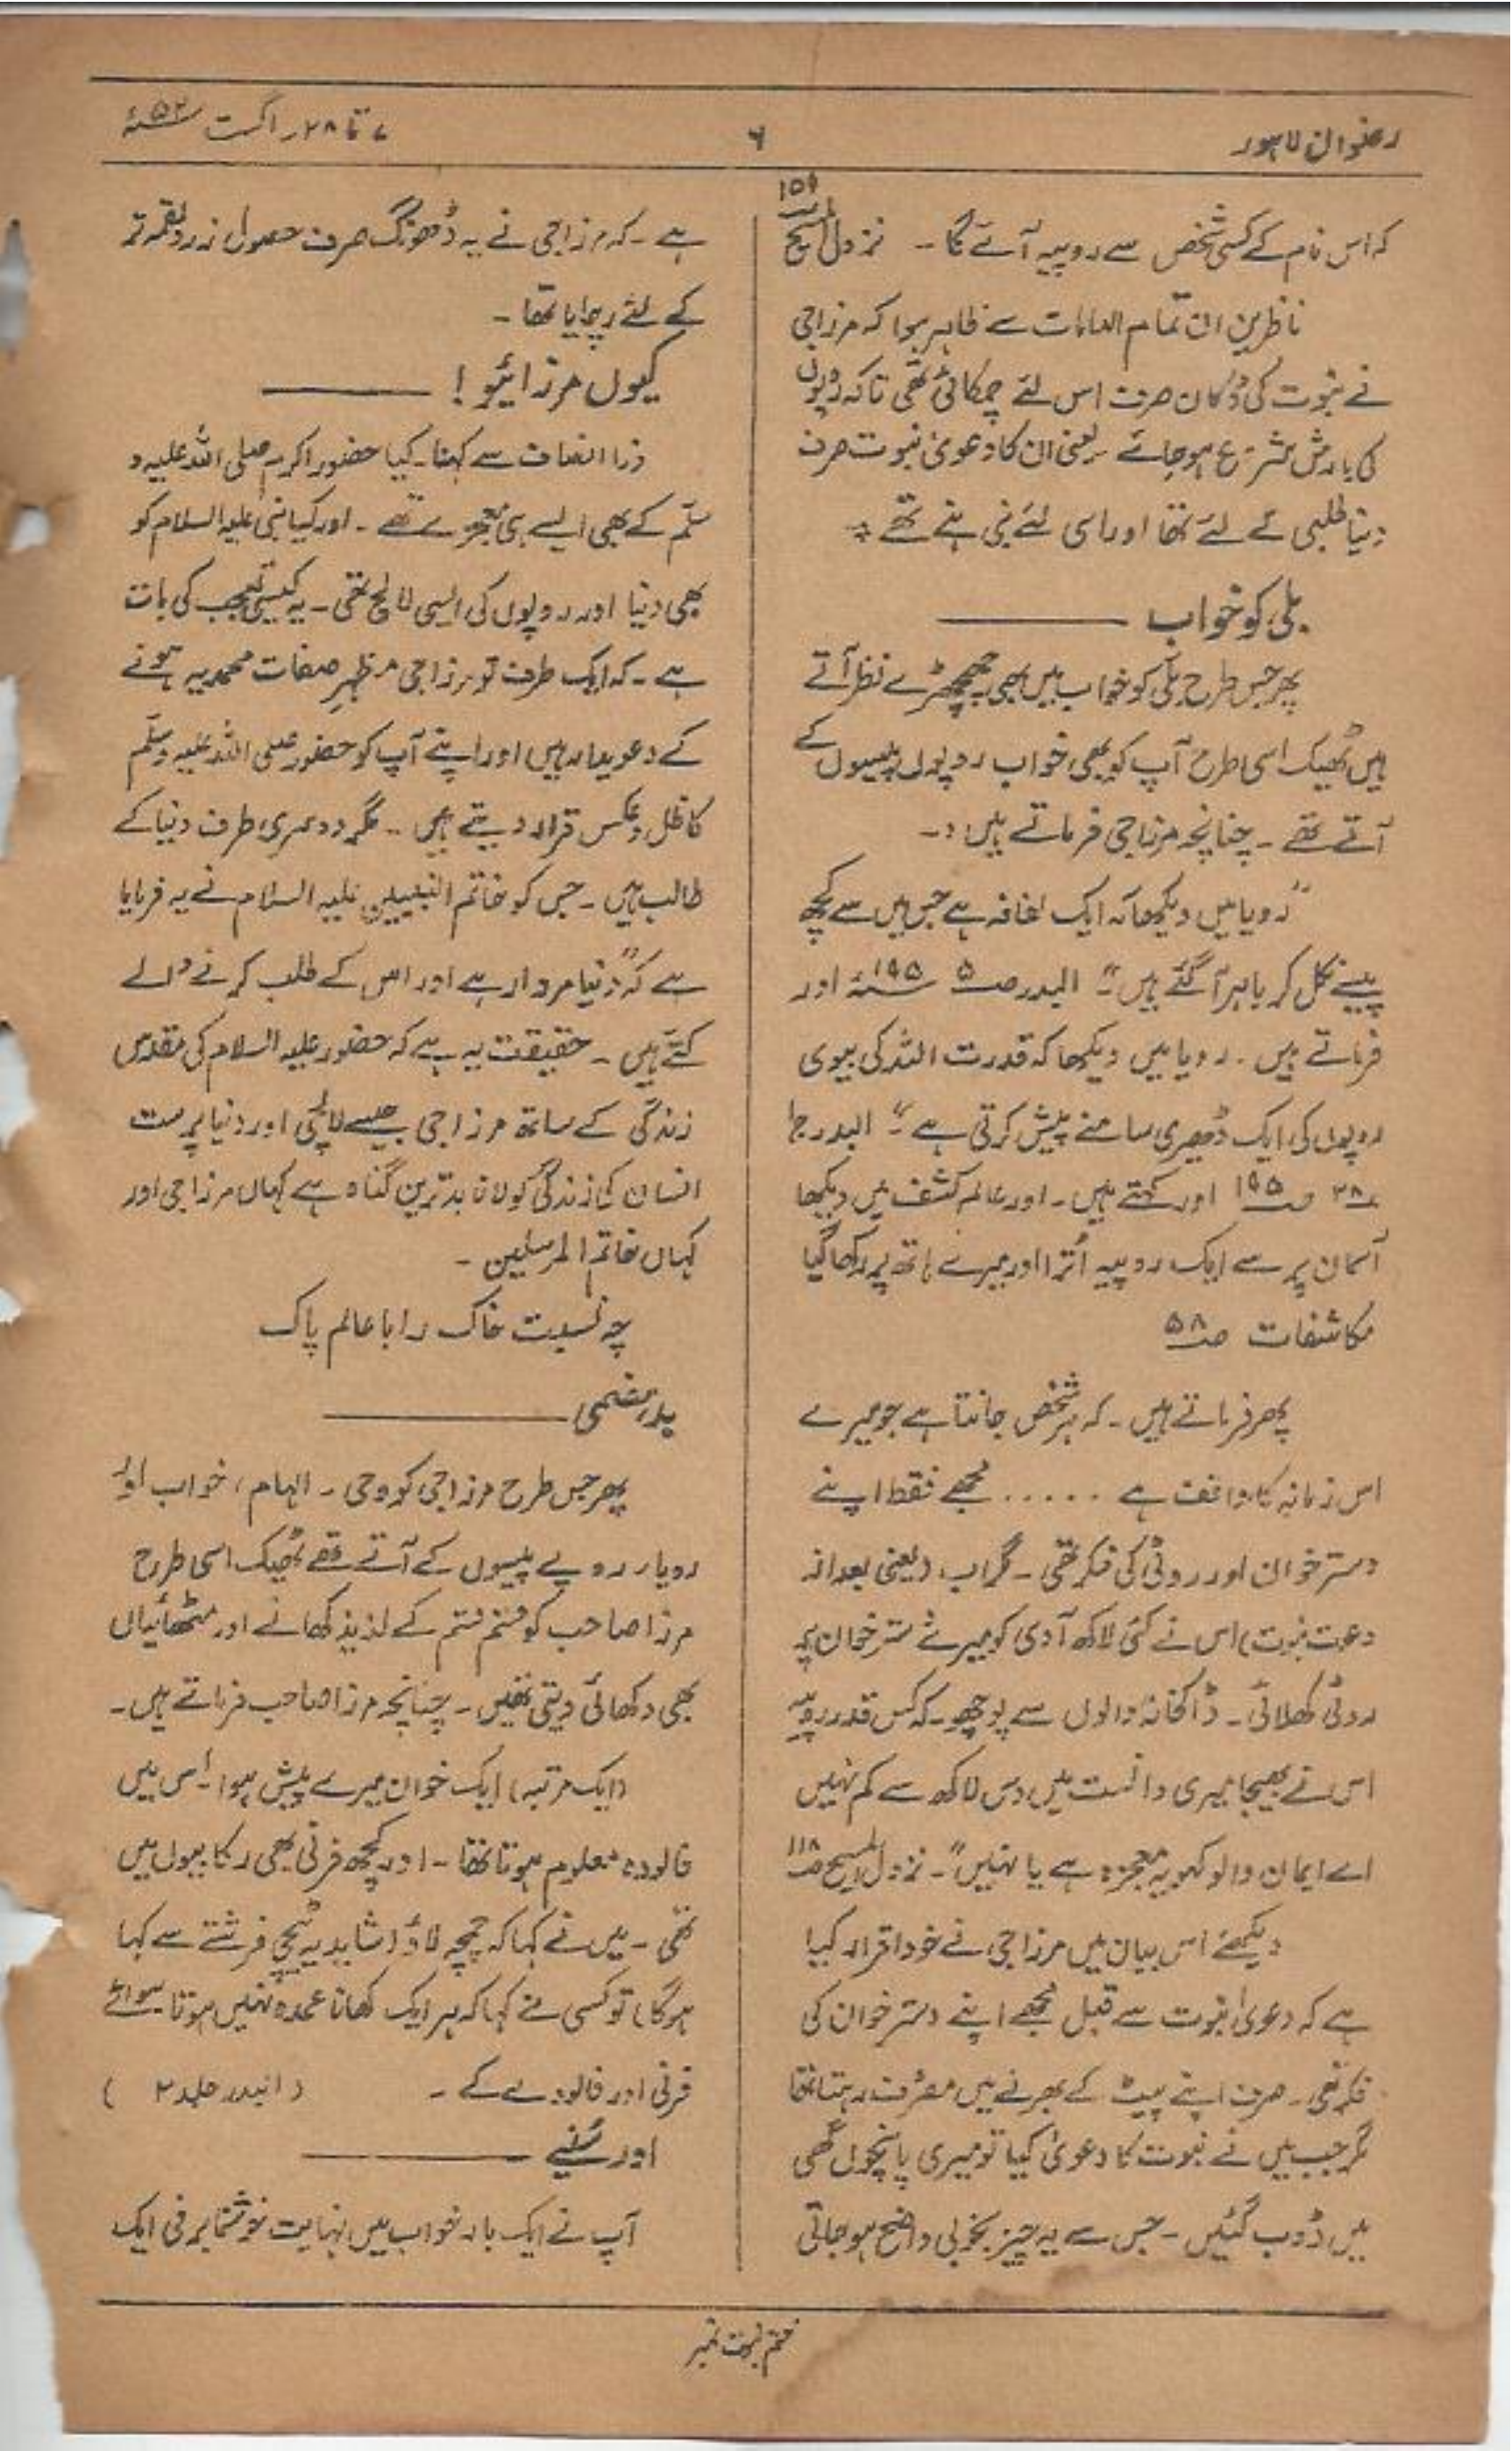 رضوان لاہور
۶
۷ تا ۲۸ر اگست ۵۲ئہ
کہ اس نام کے کسی شخص سے روپیہ آئے گا ۔ نزول المسیح
ناظرین ان تمام الہامات سے ظاہر ہوا کہ مرزا جی
نے نبوت کی دُکان صرف اس لئے چمکائی تھی تاکہ روپوں
کی بارش شروع ہو جائے یعنی ان کا دعویٰ نبوت صرف
دنیا طلبی کے لئے تھا اور اسی لئے نبی بنے تھے ؞
بلی کو خواب
پھر جس طرح بلی کو خواب میں بھی چھیچھڑے نظر آتے
ہیں ٹھیک اسی طرح آپ کو بھی خواب روپوں پیسوں کے
آتے تھے ۔ چنانچہ مرزا جی فرماتے ہیں :۔
"رویا میں دیکھا کہ ایک لفافہ ہے جس میں سے کچھ
پیسے نکل کر باہر آ گئے ہیں" البدر صـ۵ ۱۹۵ئہ اور
فرماتے ہیں ۔ رویا میں دیکھا کہ قدرت اللہ کی بیوی
روپوں کی ایک ڈھیری سامنے پیش کرتی ہے" البدر جا
ـ۳۸ صـ۱۹۵ اور کہتے ہیں ۔ اور عالم کشف میں دیکھا
آسمان پر سے ایک روپیہ اُترا اور میرے ہاتھ پر رکھا گیا
مکاشفات صـ۵۸
پھر فرماتے ہیں ۔ کہ ہر شخص جانتا ہے جو میرے
اس زمانہ کا واقف ہے ..... مجھے فقط اپنے
دسترخوان اور روٹی کی فکر تھی ۔ مگر اب (یعنی بعد از
دعوت نبوت) اس نے کئی لاکھ آدمی کو میرے دسترخوان پر
روٹی کھلائی ۔ ڈاکخانہ والوں سے پوچھو ۔ کہ کس قدر روپیہ
اس نے بھیجا میری دانست میں دس لاکھ سے کم نہیں
اے ایمان والو کہو یہ معجزہ ہے یا نہیں" ۔ نزول المسیح صـ۱۱۸
دیکھئے اس بیان میں مرزا جی نے خود اقرار کیا
ہے کہ دعویٰ نبوت سے قبل مجھے اپنے دسترخوان کی
فکر تھی ۔ صرف اپنے پیٹ کے بھرنے میں مصروف رہتا تھا
مگر جب میں نے نبوت کا دعویٰ کیا تو میری پانچوں گھی
میں ڈوب گئیں ۔ جس سے یہ چیز بخوبی واضح ہو جاتی
ہے ۔ کہ مرزا جی نے یہ ڈھونگ صرف حصول زر و لقمہ تر
کے لئے رچایا تھا ۔
کیوں مرزائیو !
ذرا انصاف سے کہنا ۔ کیا حضور اکرم صلی اللہ علیہ و
سلّم کے بھی ایسے ہی معجزے تھے ۔ اور کیا نبی علیہ السلام کو
بھی دنیا اور روپوں کی ایسی لالچ تھی ۔ یہ کیسی تعجب کی بات
ہے ۔ کہ ایک طرف تو مرزا جی مظہرِ صفات محمدیہ ہونے
کے دعویدار ہیں اور اپنے آپ کو حضور صلی اللہ علیہ وسلّم
کا ظل و عکس قرار دیتے ہیں ۔ مگر دوسری طرف دنیا کے
طالب ہیں ۔ جس کو خاتم النبیین علیہ السلام نے یہ فرمایا
ہے کہ "دنیا مردار ہے اور اس کے طلب کرنے والے
کتّے ہیں ۔ حقیقت یہ ہے کہ حضور علیہ السلام کی مقدس
زندگی کے ساتھ مرزا جی جیسے لالچی اور دنیا پرست
انسان کی زندگی کو لانا بدترین گناہ ہے کہاں مرزا جی اور
کہاں خاتم المرسلین ۔
چہ نسبت خاک را با عالم پاک
بدہضمی
پھر جس طرح مرزا جی کو وحی ۔ الہام ، خواب اور
رویا ر روپے پیسوں کے آتے تھے ٹھیک اسی طرح
مرزا صاحب کو قسم قسم کے لذیذ کھانے اور مٹھائیاں
بھی دکھائی دیتی تھیں ۔ چنانچہ مرزا صاحب فرماتے ہیں ۔
(ایک مرتبہ) ایک خوان میرے پیش ہوا ۔ اس میں
فالودہ معلوم ہوتا تھا ۔ اور کچھ فرنی بھی رکابیوں میں
تھی ۔ میں نے کہا کہ چمچہ لاؤ (شاید یہ ٹیچی فرشتے سے کہا
ہوگا) تو کسی نے کہا کہ ہر ایک کھانا عمدہ نہیں ہوتا سوائے
فرنی اور فالودے کے ۔ (البدر جلد ۲ )
اور سُنیے
آپ نے ایک بار خواب میں نہایت خوشنما برفی ایک
ختم نبوت نمبر